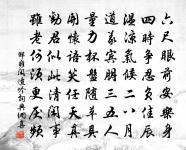 六尺眼前安樂身
四時爭忍負佳辰
溫涼氣候二八月
道義賓朋三五人
量力杯盤隨草具
開懷語笑任天真
勸君似此清閒事
雖老何須更厭頻
邵雍閒適吟詞典網書